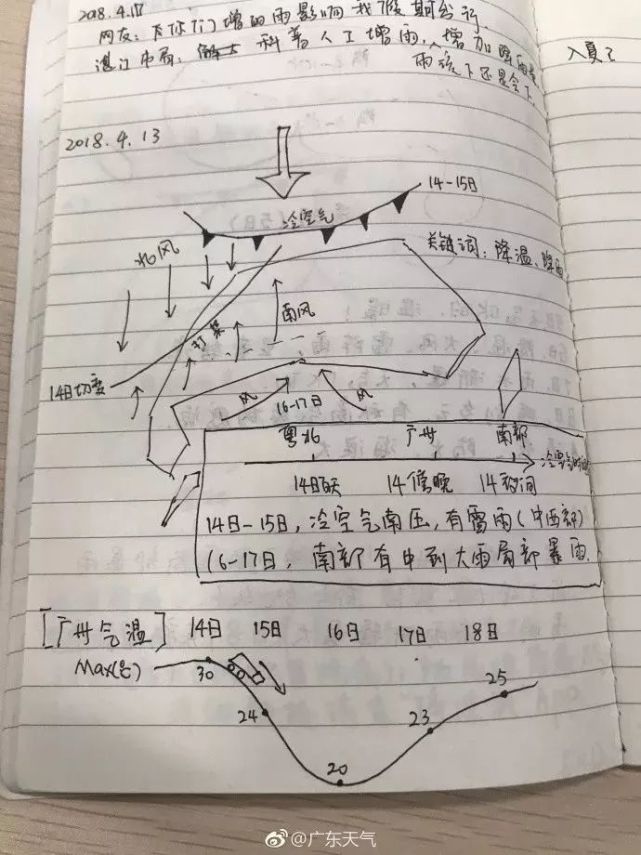 2018.4.17
网友：下你们增的雨影响我假期出行
湛江市局：科普人工增雨，增加降雨量
雨该下还是会下。
入夏了
2018.4.13
14-15日
冷空气
北风
关键词：降温、降雨
南风
打架
14日切变
风
16-17日
风
粤北 广州 南部
冷空气时间
14日白天 14傍晚 14夜间
14日-15日，冷空气南压，有雷雨（中西部）
16-17日，南部有中到大雨局部暴雨.
[广州气温] 14日 15日 16日 17日 18日
Max(℃)
30
24
20
23
25
@广东天气